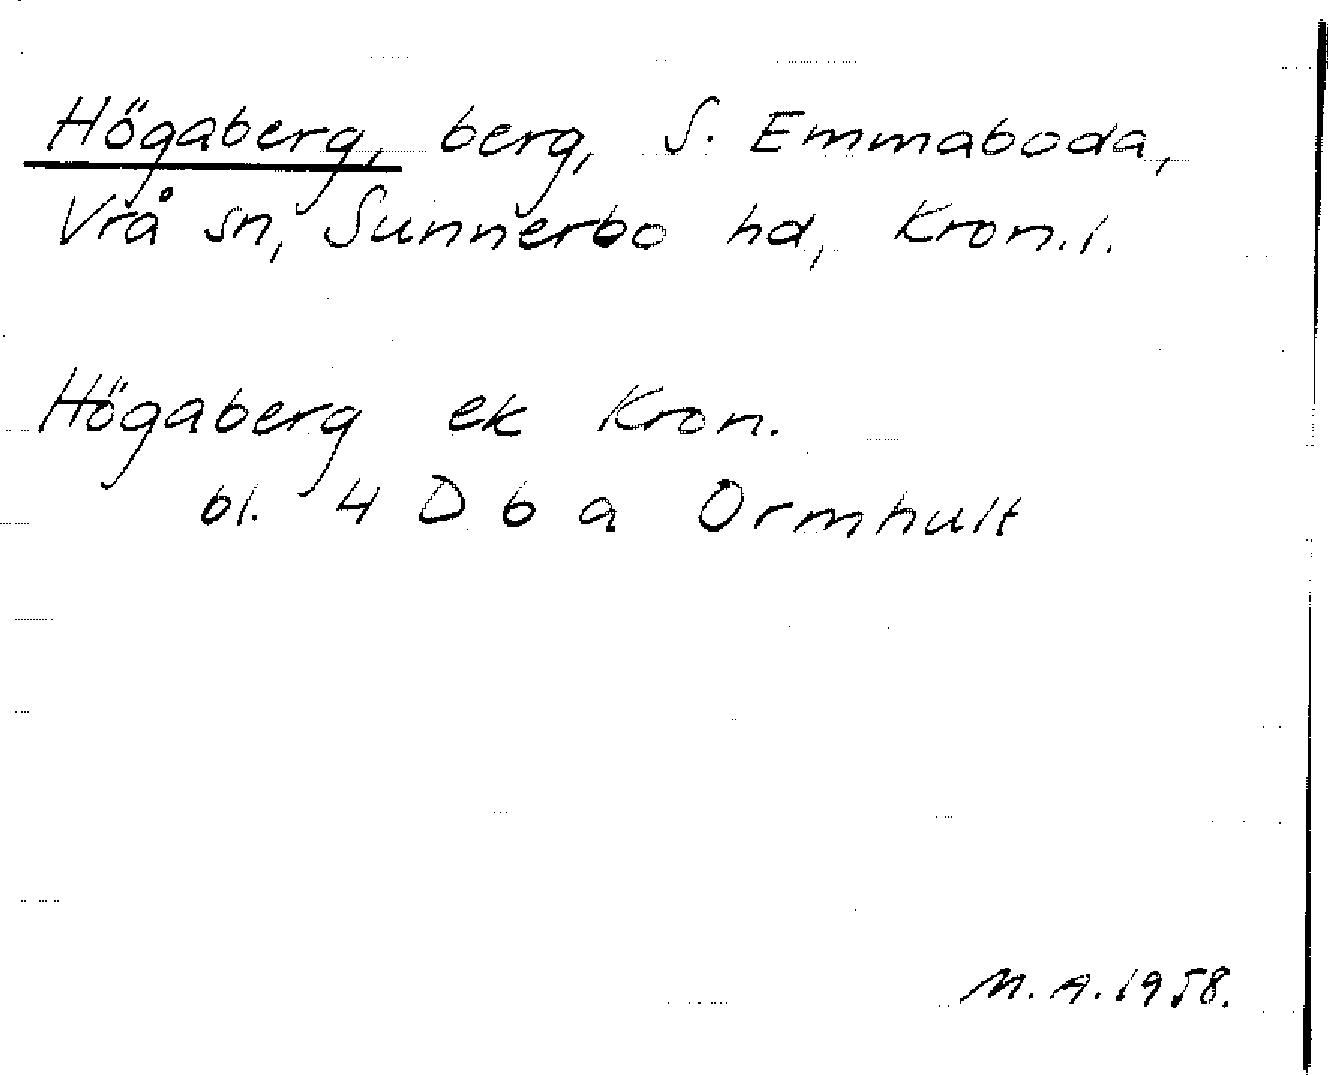 Högaberg, berg, S. Emmaboda,
Vrå sn, Sunnerbo hd, Kron.l.
Högaberg ek Kron.
bl. 4 D 6 a Ormhult
M.A.1958.